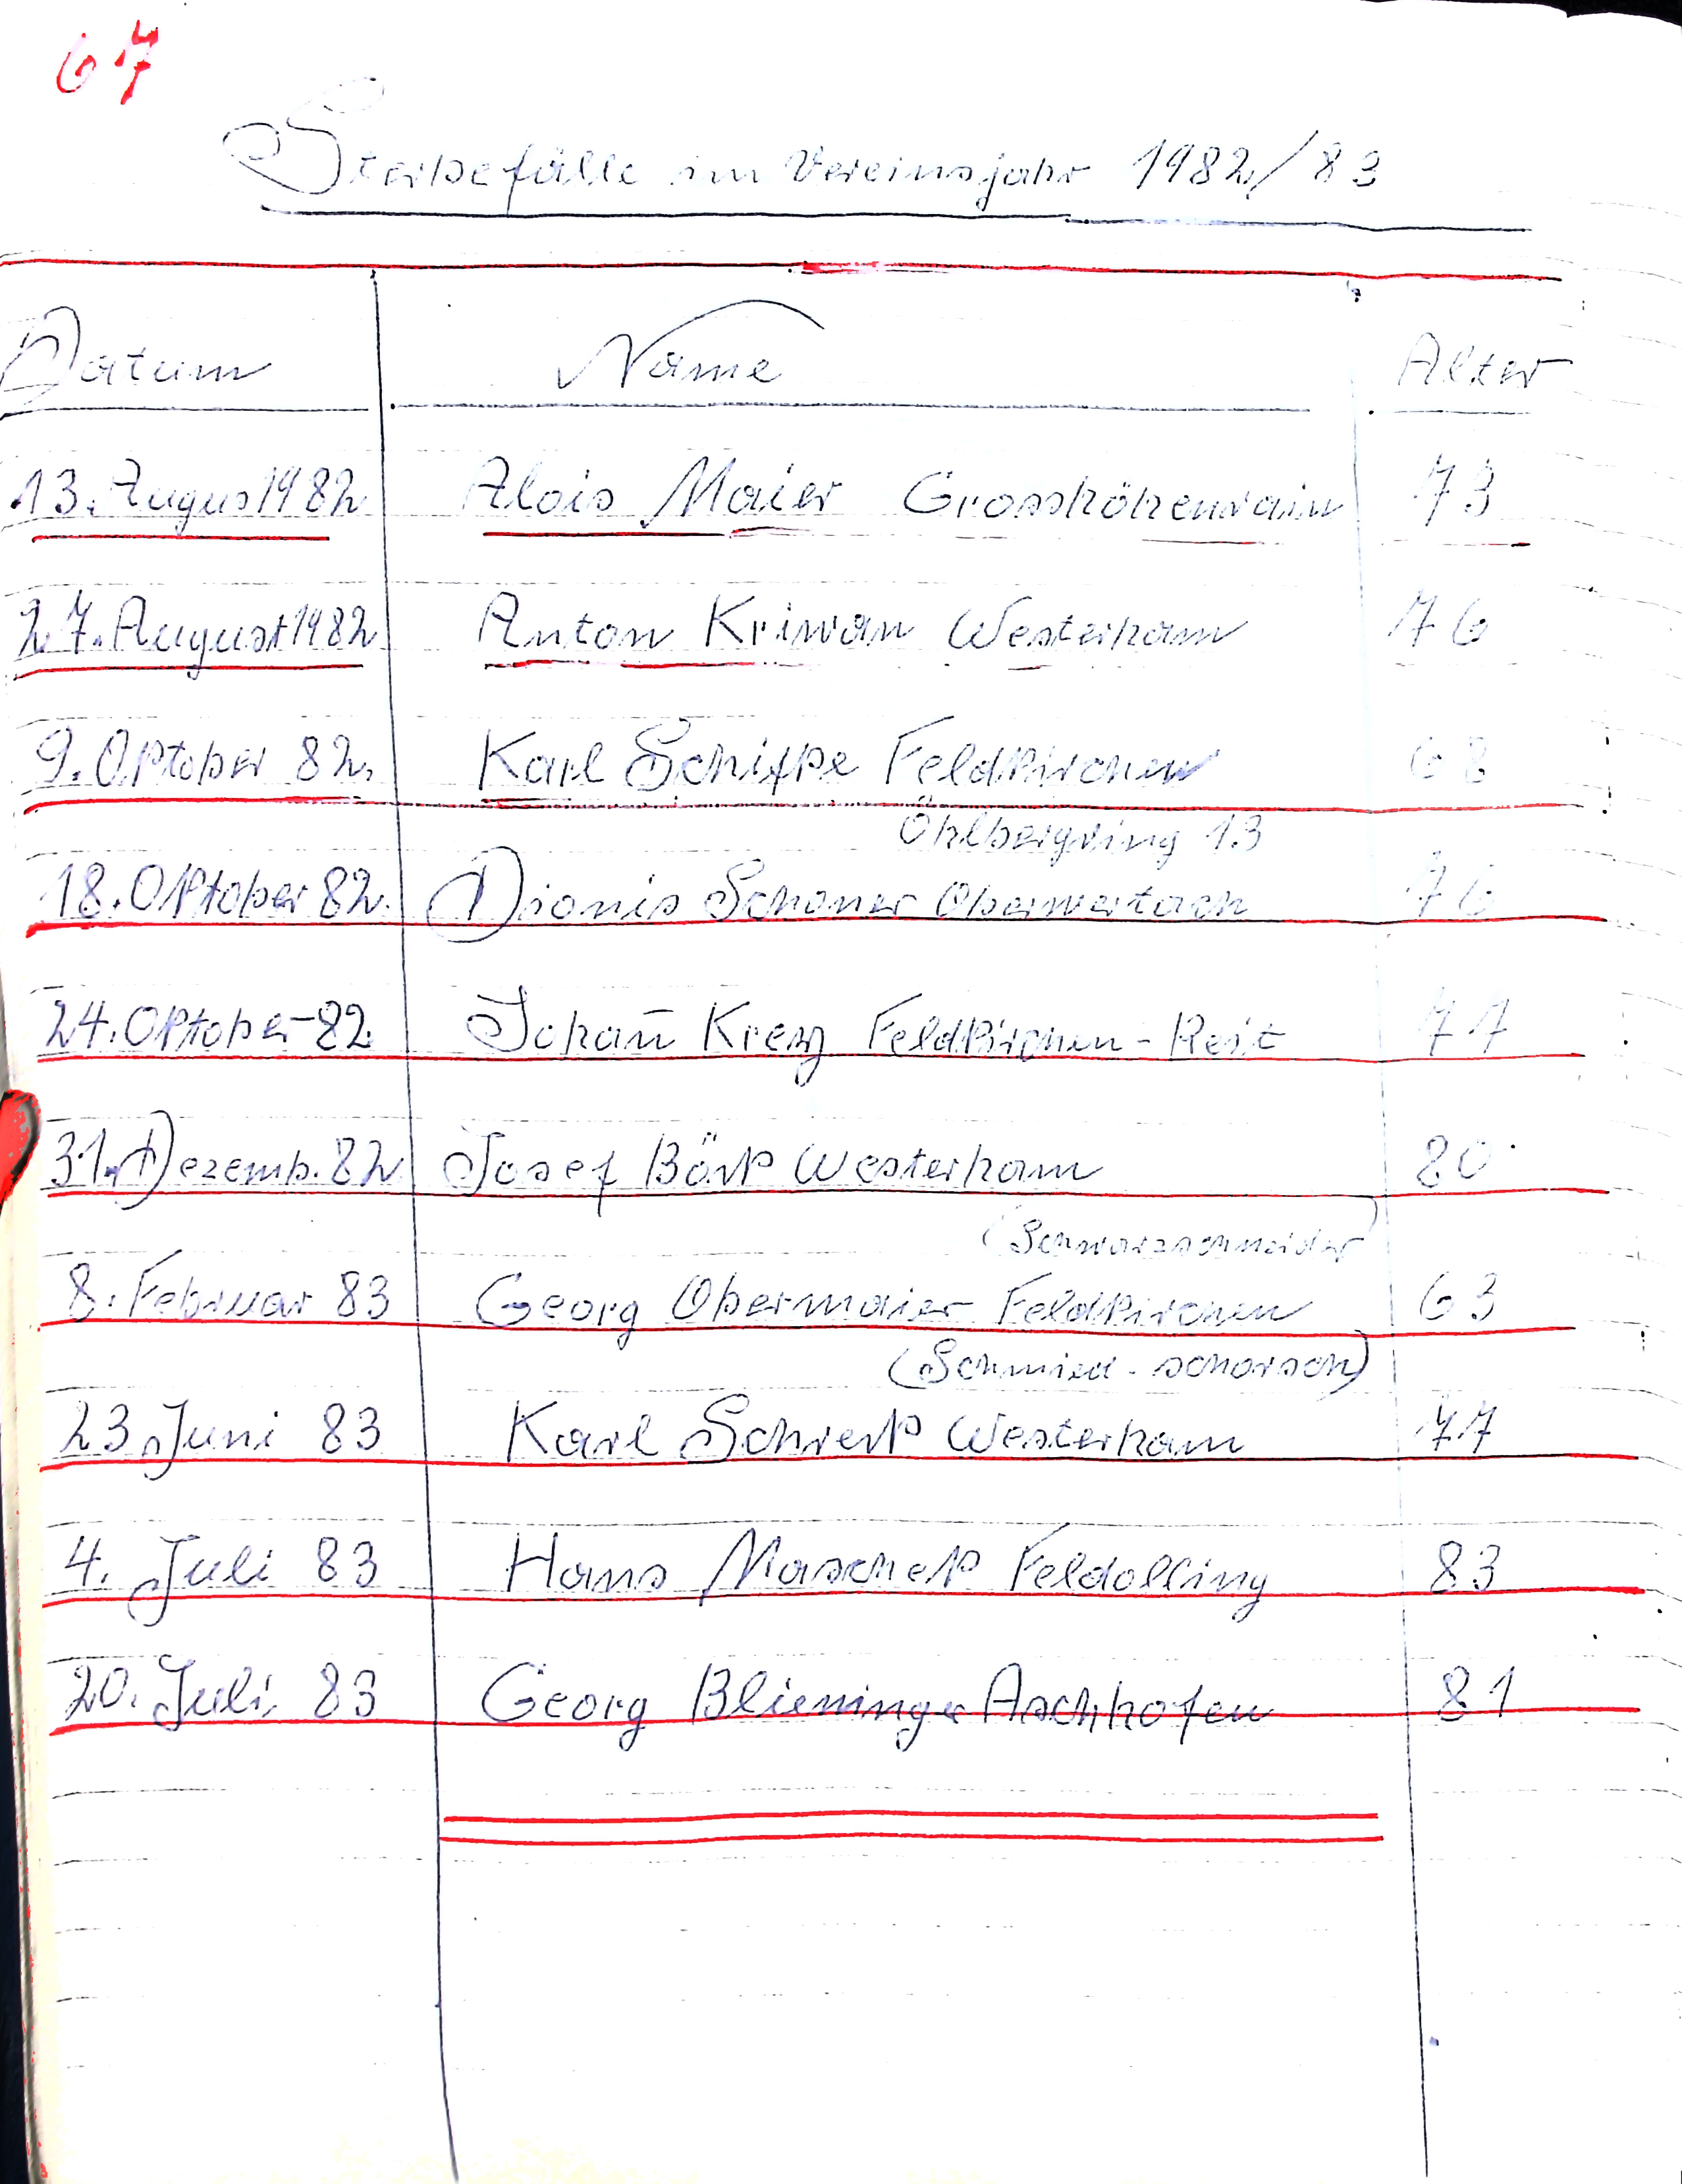 67
Sterbefälle im Vereinsjahr 1982/83
Datum Name Alter
13. Augus 1982 Alois Maier Grosshöhenrain 73
27. August 1982 Anton Kriwan Westerham 76
9. Oktober 82. Karl Feldkirchen 68
Öhlbergring 13
18. Oktober 82. Dionis Schoner Oberwertach 76
24. Oktober-82. Johan̄ Kreuz Feldkirchen-Reit 77
31. Dezemb. 82 Josef Börk Westerham 80
(Schwarzschneider)
8. Februar 83 Georg Obermaier Feldkirchen 63
(Schmied-schorsch)
23 Juni 83 Karl Schrek Westerham 77
4. Juli 83 Hans Maschek Feldolling 83
20. Juli 83 Georg Blieninger Aschhofen 81